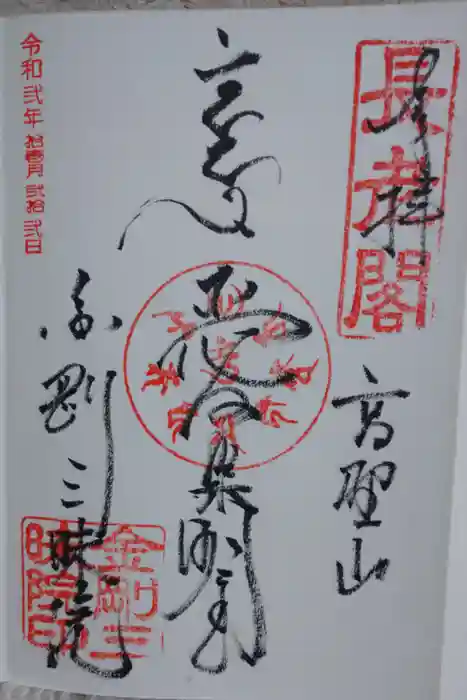 奉拝
長老閣
高野山
愛染明王
金剛三昧院
金剛三
昧院印
令和弐年 拾壱月 弐拾弐日